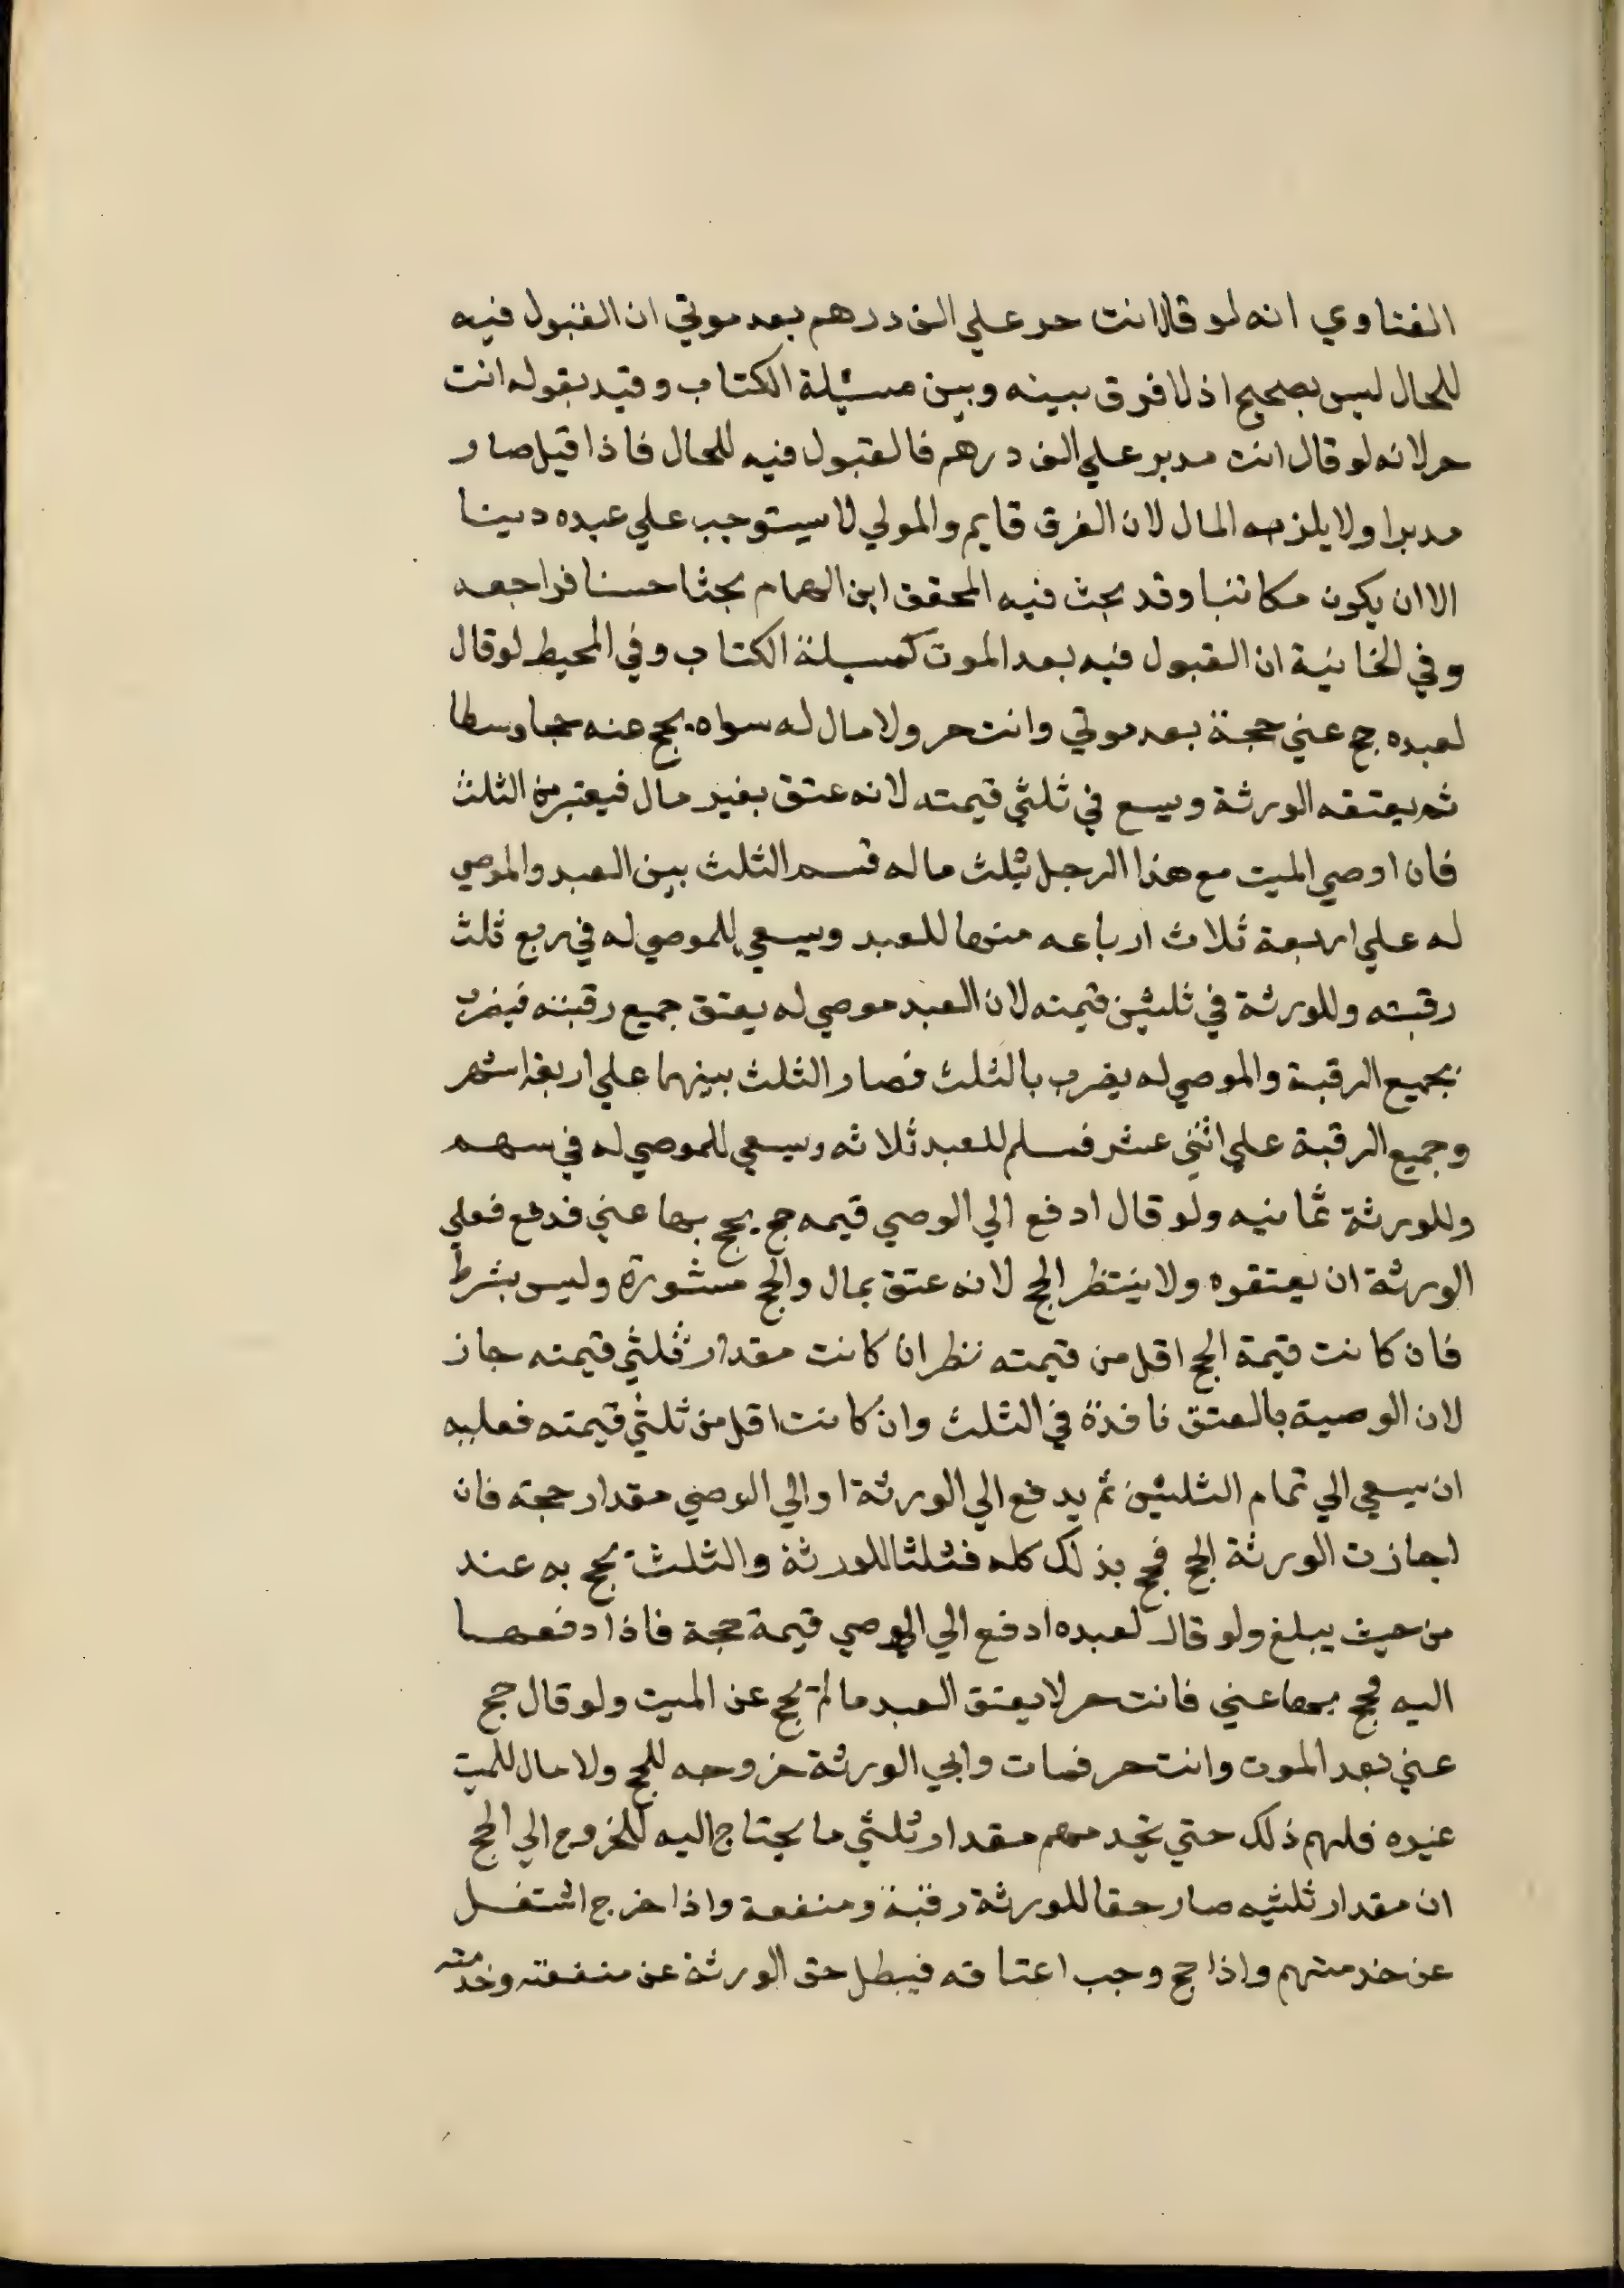 الفتاوي انه لو قال انت حر علي الف درهم بعد موتي ان القبول فيه
للحال ليس بصحيح اذ لا فرق بينه وبين مسئلة الكتاب وقيد بقوله انت
حر لانه لو قال انت مدبر علي الف درهم فالقبول فيه للحال فاذا قبل صار
مدبرا ولا يلزمه المال لان الفرق قايم والمولي لا يستوجب علي عبده دينا
الا ان يكون مكاتبا وقد بحث فيه المحقق ابن الهمام بحثا حسنا فراجعه
وفي الخانية ان القبول فيه بعد الموت كمسيلة الكتاب وفي المحيط لو قال
لعبده حج عني حجة بعد موتي وانت حر ولا مال له سواه يحج عنه حجا وسطا
ثم يعتقه الورثة ويسع في ثلثي قيمته لانه عتق بغير مال فيعتبر من الثلث
فان اوصي الميت مع هذا الرجل بثلث ماله قسم الثلث بين العبد والموصي
له علي اربعة ثلاث ارباعه منها للعبد ويسعي للموصي له في ربع ثلث
رقبته وللورثة في ثلثين قيمته لان العبد موصي له يعتق جميع رقبته فيضرب
بجميع الرقبة والموصي له يضرب بالثلث فصار الثلث بينهما علي اربعة اسهم
وجميع الرقبة علي اثني عشر فسلم للعبد ثلاثه ويسعي للموصي له في سهم
وللورثة ثمانيه ولو قال ادفع الي الوصي قيمه حج يحج بها عني فدفع فعلي
الورثة ان يعتقوه ولا ينتظر الحج لانه عتق بمال والحج مشورة وليس بشرط
فان كانت قيمة الحج اقل من قيمته ننظر ان كانت مقدار ثلثي قيمته جاز
لان الوصية بالعتق نافذة في الثلث وان كانت اقل من ثلثي قيمته فعليه
ان يسعي الي تمام الثلثين ثم يدفع الي الورثة او الي الوصي مقدار حجة فان
اجازت الورثة الحج فحج بذلك كله فثلثا للورثة والثلث يحج به عنه
من حيث يبلغ ولو قال لعبده ادفع الي الوصي قيمة حجة فاذا دفعها
اليه فحج بها عني فانت حر لا يعتق العبد ما لم يحج عن الميت ولو قال حج
عني بعد الموت وانت حر فمات وابي الورثة خروجه للحج ولا مال للميت
غيره فلهم ذلك حتي يخدمهم مقدار ثلثي ما يحتاج اليه للخروج الي الحج
ان مقدار ثلثيه صار حقا للورثة رقبة ومنفعة واذا خرج اشتغل
عن خدمتهم واذا حج وجب اعتاقه فيبطل حق الورثة عن منفعته وخدمته